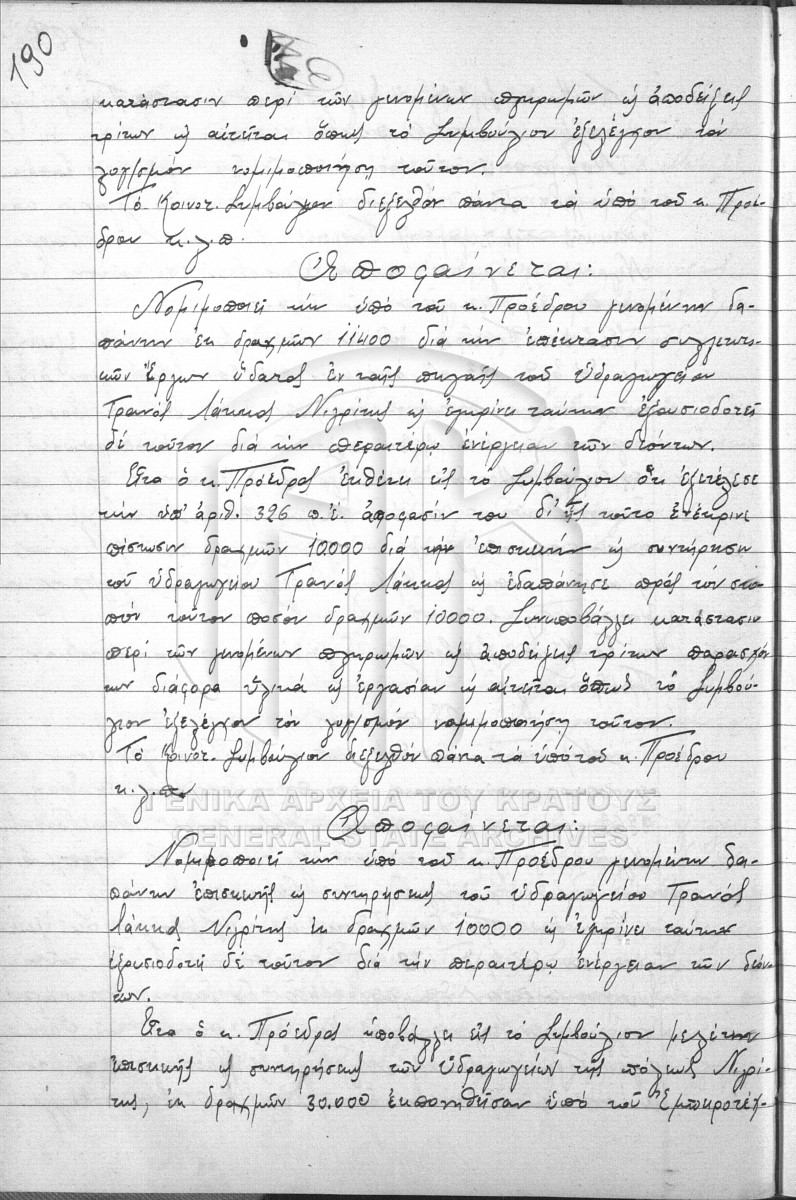 190
κατάστασιν περί τῶν γενομένων πληρωμῶν ὡς ἀποδείξεις
τρίτων ὡς αἰτεῖται ὅπως τό Συμβούλιον ἐξελέγχον τόν
λογ/σμόν νομιμοποιήσῃ τοῦτον.
Τό Κοινοτ. Συμβούλιον διεξελθόν πάντα τά ὑπό τοῦ κ. Προέ-
δρου κ.λ.π.
Ἀποφαίνεται:
Νομιμοποιεῖ τήν ὑπό τοῦ κ. Προέδρου γενομένην δα-
πάνην ἐκ δραχμῶν 11400 διά τήν ἐπέκτασιν συλλεκτι-
κῶν Ἔργων ὕδατος ἐν ταῖς πηγαῖς τοῦ Ὑδραγωγείου
Τρανός Λάκκος Νιγρίτης ὡς ἐγκρίνει ταύτην ἐξουσιοδοτεῖ
δέ τοῦτον διά τήν περαιτέρω ἐνέργειαν τῶν δεόντων.
Εἶτα ὁ κ. Πρόεδρος ἐκθέτει εἰς τό Συμβούλιον ὅτι ἐξετέλεσε
τήν ὑπ' ἀριθ. 326 π.ἔ. ἀπόφασίν του δι' ἧς τοῦτο ἐνέκρινε
πίστωσιν δραχμῶν 10000 διά τήν ἐπισκευήν ὡς συντήρησιν
τοῦ ὑδραγωγείου Τρανός Λάκκος ὡς ἐδαπάνησε πρός τόν σκο-
πόν τοῦτον ποσόν δραχμῶν 10000. Συνυποβάλλει κατάστασιν
περί τῶν γενομένων πληρωμῶν ὡς ἀποδείξεις τρίτων παρασχόν-
των διάφορα ὑλικά ὡς ἐργασίαν ὡς αἰτεῖται ὅπως τό Συμβού-
λιον ἐξελέγχον τόν λογ/σμόν νομιμοποιήσῃ τοῦτον.
Τό Κοινοτ. Συμβούλιον διεξελθόν πάντα τά ὑπό τοῦ κ. Προέδρου
κ.λ.π.
ΓΕΝΙΚΑ ΑΡΧΕΙΑ ΤΟΥ ΚΡΑΤΟΥΣ
GENERAL STATE ARCHIVES
Ἀποφαίνεται:
Νομιμοποιεῖ τήν ὑπό τοῦ κ. Προέδρου γενομένην δα-
πάνην ἐπισκευῆς ὡς συντηρήσεως τοῦ ὑδραγωγείου Τρανός
Λάκκος Νιγρίτης ἐκ δραχμῶν 10000 ὡς ἐγκρίνει ταύτην
ἐξουσιοδοτεῖ δέ τοῦτον διά τήν περαιτέρω ἐνέργειαν τῶν δεόν-
των.
Εἶτα ὁ κ. Πρόεδρος ὑποβάλλει εἰς τό Συμβούλιον μελέτην
ἐπισκευῆς ὡς συντηρήσεως τῶν Ὑδραγωγείων τῆς πόλεως Νιγρί-
της, ἐκ δραχμῶν 30.000 ἐκπονηθεῖσαν ὑπό τοῦ Ἐμπειροτέχ-